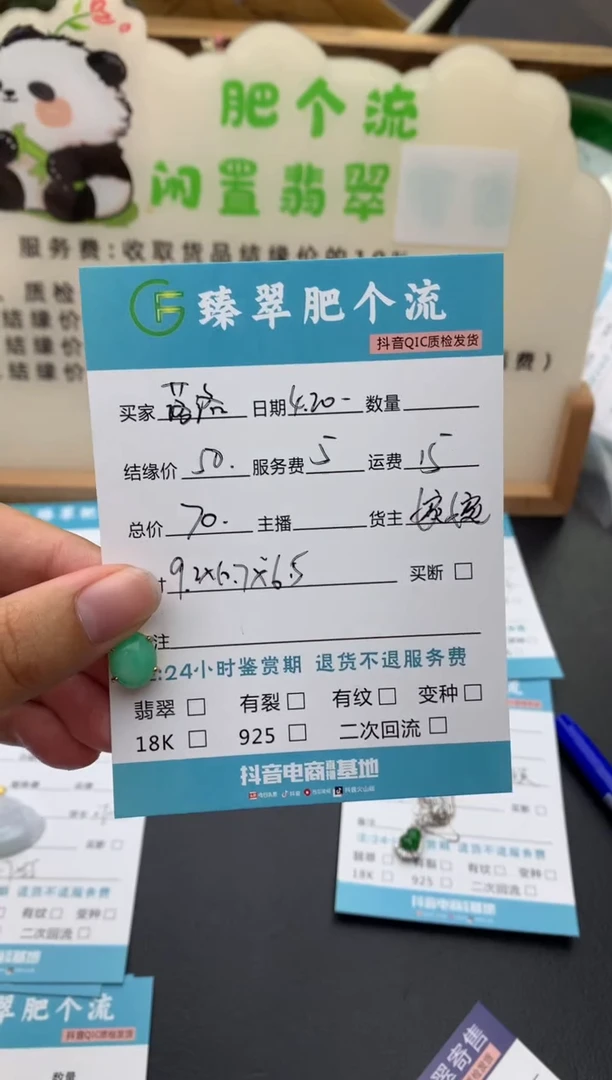 肥个流
闲置翡翠
服务费:收取货品结缘价的10%
质检
结缘价
结缘价
结缘价
费)
臻翠肥个流
抖音QIC质检发货
买家 日期 4.20 数量
结缘价 50. 服务费 5 运费 15
总价 70. 主播 货主
9.2x6.7x6.5 买断
注
:24小时鉴赏期 退货不退服务费
翡翠 有裂 有纹 变种
18K 925 二次回流
抖音电商直播基地
买断
24小时鉴赏期 退货不退服务费
有裂 有纹 变种
18K 925 二次回流
抖音电商直播基地
退货不退服务费
有纹 变种
二次回流
翠肥个流
抖音QIC质检发货
数量
翠寄售